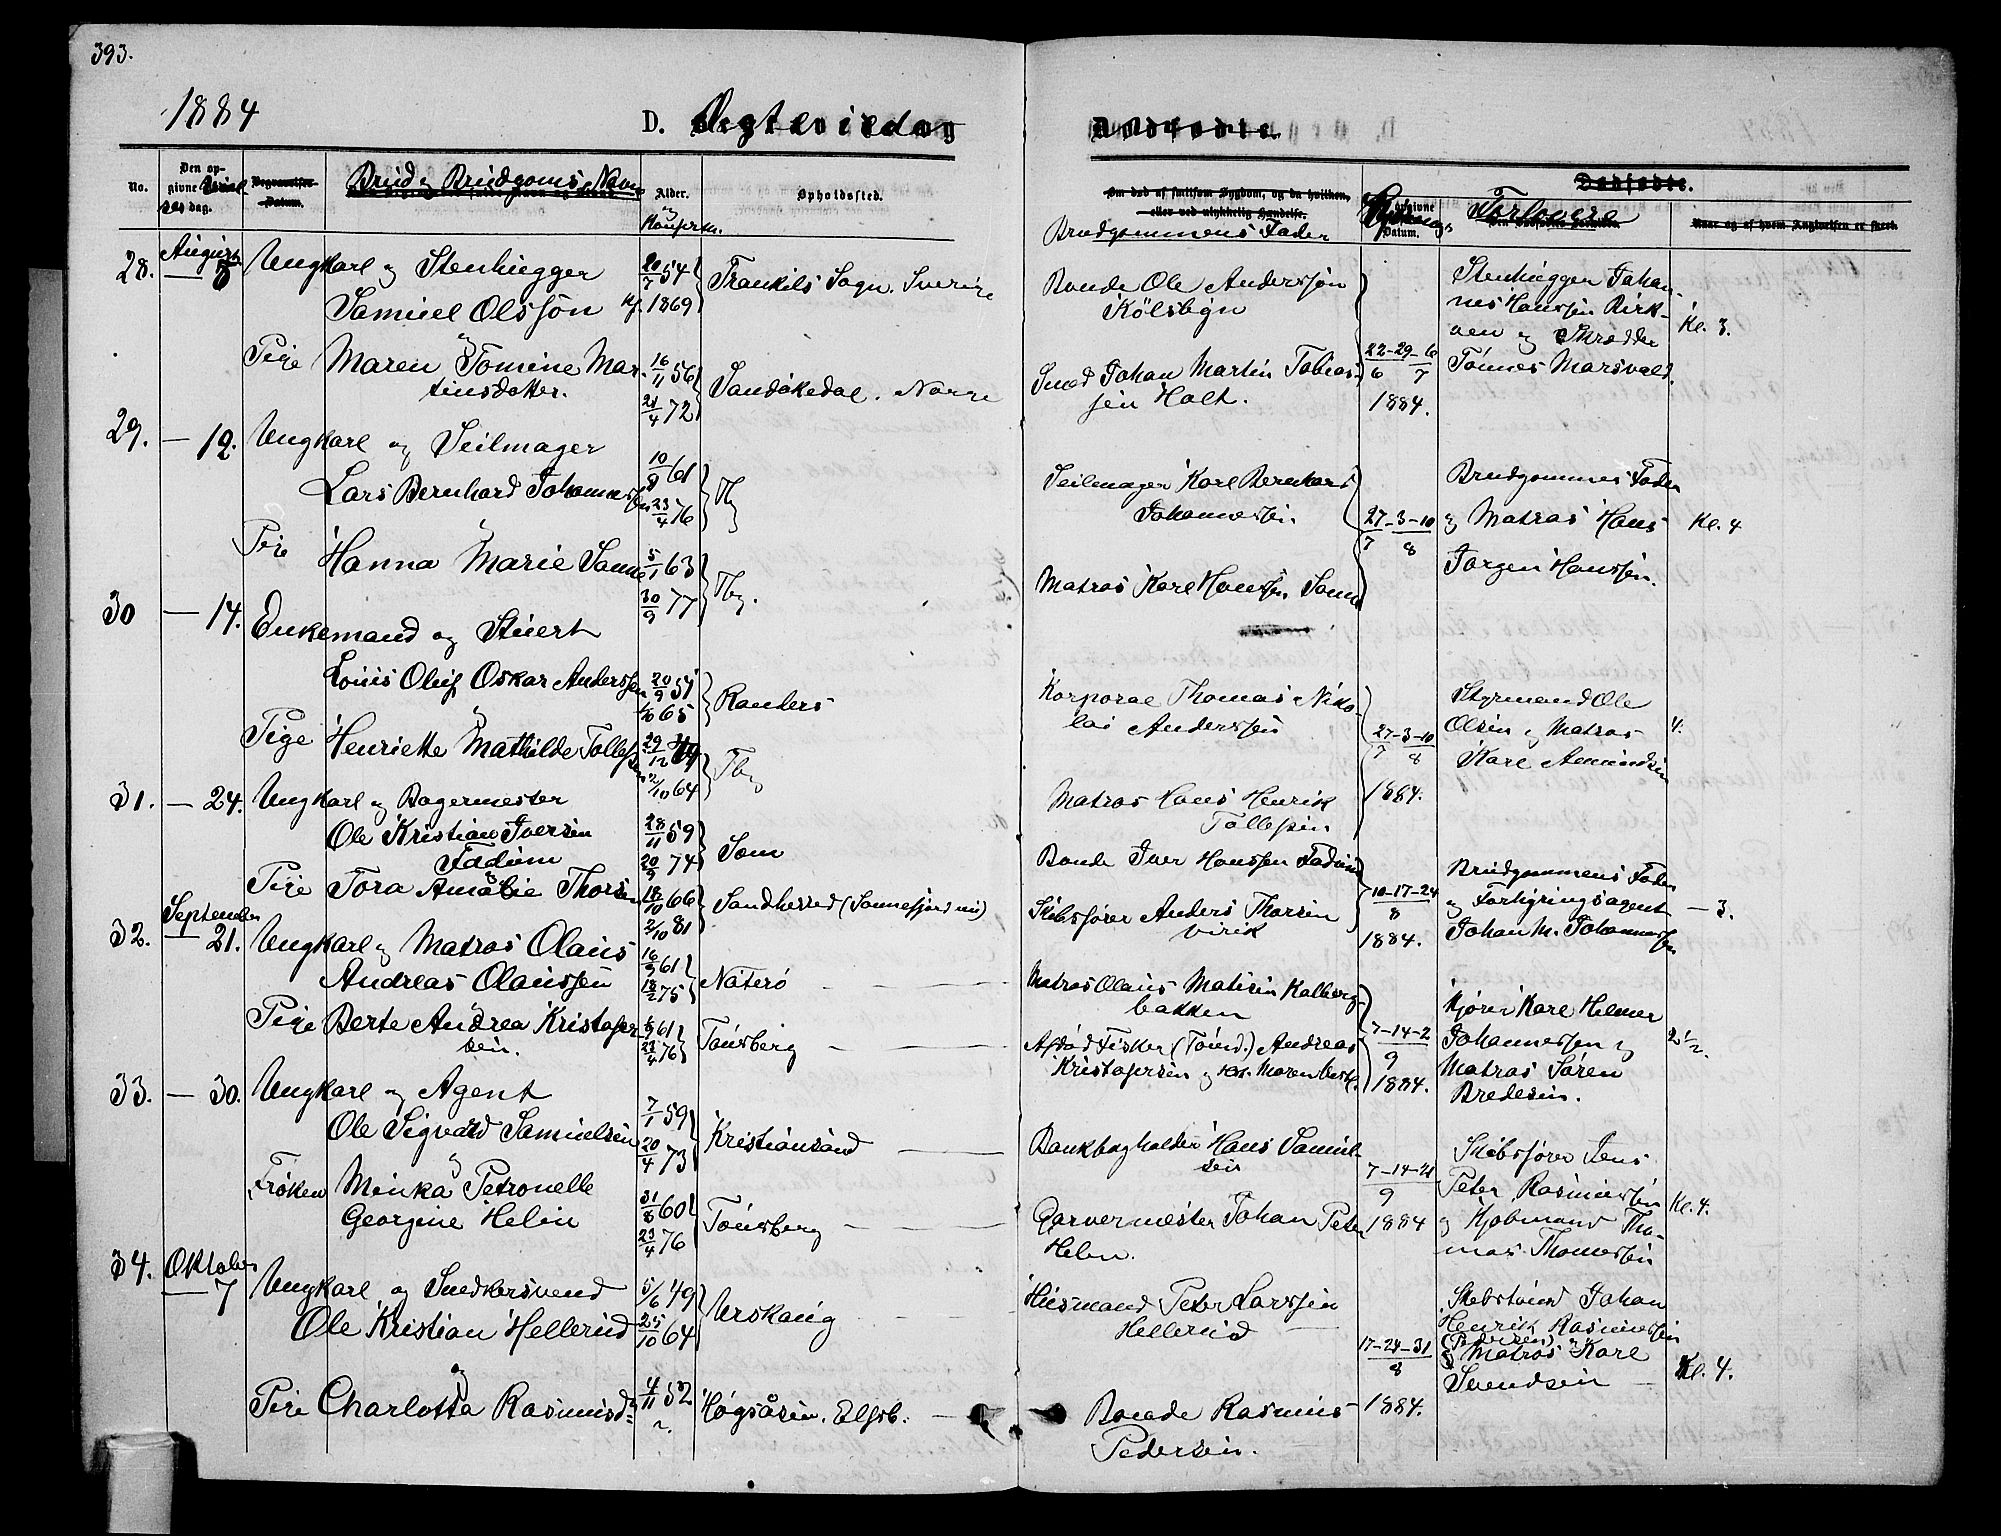 393.
1884
D. Ægteviede
Dødfødte.
No.
Den op-
givne
dag.
Begravelses-
Datum.
Brud og Brudgoms Navn
Alder.
Konferm.
Opholdssted.
Om død af smitsom Sygdom, og da hvilken,
eller ved ulykkelig Hændelse.
Brudgommens Fader
opgivne
Datum.
Dødfødte.
Forlovere
Naar og af hvem Angivelsen er skeet.
28. August
— 5
Ungkarl og Stenhugger
Samuel Olssøn Kf.
20/7 54
1869
Trankils Sogn. Sverige
Bonde Ole Anderssøn
Kölsbyn
Stenhugger Johan-
nes Hanssen Kirk-
Kl. 3.
og
Pige Maren Tomine Mar-
tinsdatter.
16/11 56
21/4 72
Sandøkedal. Norge
Smed Johan Martin Tobias-
sen Holt.
22-29-6
6 7
1884.
ven og Skrædder
Tønnes Marsvald.
29. — 12.
Ungkarl og Seilmager
Lars Bernhard Johannessen
10/8 61
23/4 76
Tbg
Seilmager Karl Bernhard
Johannessen
27-3-10
7 8
Brudgommens Fader
og Matros Hans
Jørgen Hanssen.
Kl. 4
og
Pige Hanna Marie Sanne
5/1 63
30/9 77
Tbg.
Matros Karl Hanssen Sanne
30 — 14.
Enkemand og Stuert
Louis Oluf Oskar Anderssen
20/9 51
1/10 65
Randers
Korporal Thomas Niko-
lai Anderssen
27-3-10
7 8
1884.
Styrmand Ole
Olsen og Matros
Karl Amundsen
4.
og
Pige Henriette Mathilde Tollefsen
29/12 49
2/10 64
Tbg
Matros Hans Henrik
Tollefsen
31. — 24.
Ungkarl og Bagermester
Ole Kristian Iversen
Fadum
28/11 59
20/9 74
Sem
Bonde Iver Hanssen Fadum
10-17-24
8
1884.
Brudgommens Fader
og Forhyringsagent
Johan M. Johannessen
— 3.
og
Pige Tora Amalie Thorsen
18/10 66
2/10 81
Sandherred (Sannefjord nu)
Skibsfører Anders Thorsen
Virik
32. September
— 21.
Ungkarl og Matros Olaus
Andreas Olaussen
16/9 61
18/2 75
Nøterø
Matros Olaus Matisen Kalberg-
bakken
7-14-2
9
1884.
Kjører Karl Helmer
Johannessen og
Matros Søren
Bredesen.
2 1/2.
og
Pige Berte Andrea Kristofer-
sen.
1/9 61
23/4 76
Tønsberg
Afdød Fisker (Tømd.) Andreas
Kristofersen og Maren Berth.
33. — 30.
Ungkarl og Agent
Ole Sigvard Samuelsen
7/1 59
20/4 73
Kristiansand
Bankbogholder Hans Samuel-
sen
7-14-21
9
1884
Skibsfører Jens
Peter Rasmussen
og Kjøbmand Tho-
mas Thomessen
Kl. 4.
og
Frøken Minka Petronelle
Georgine Helin
31/8 60
23/4 76
Tønsberg
Garvermester Johan Peter
Helen.
34. Oktober
— 7
Ungkarl og Snedkersvend
Ole Kristian Hellerud
5/6 49
25/10 64
Urskoug
Husmand Peter Larssen
Hellerud
17-24-31
8
1884.
Skibstømd Johan
Henrik Rasmussen
(Pedersen)
og Matros Karl
Svendsen
Kl. 4.
og
Pige Charlotta Rasmusd.
4/11 52
?
Høgsåsen. Elfsb.
Bonde Rasmus
Pedersen.